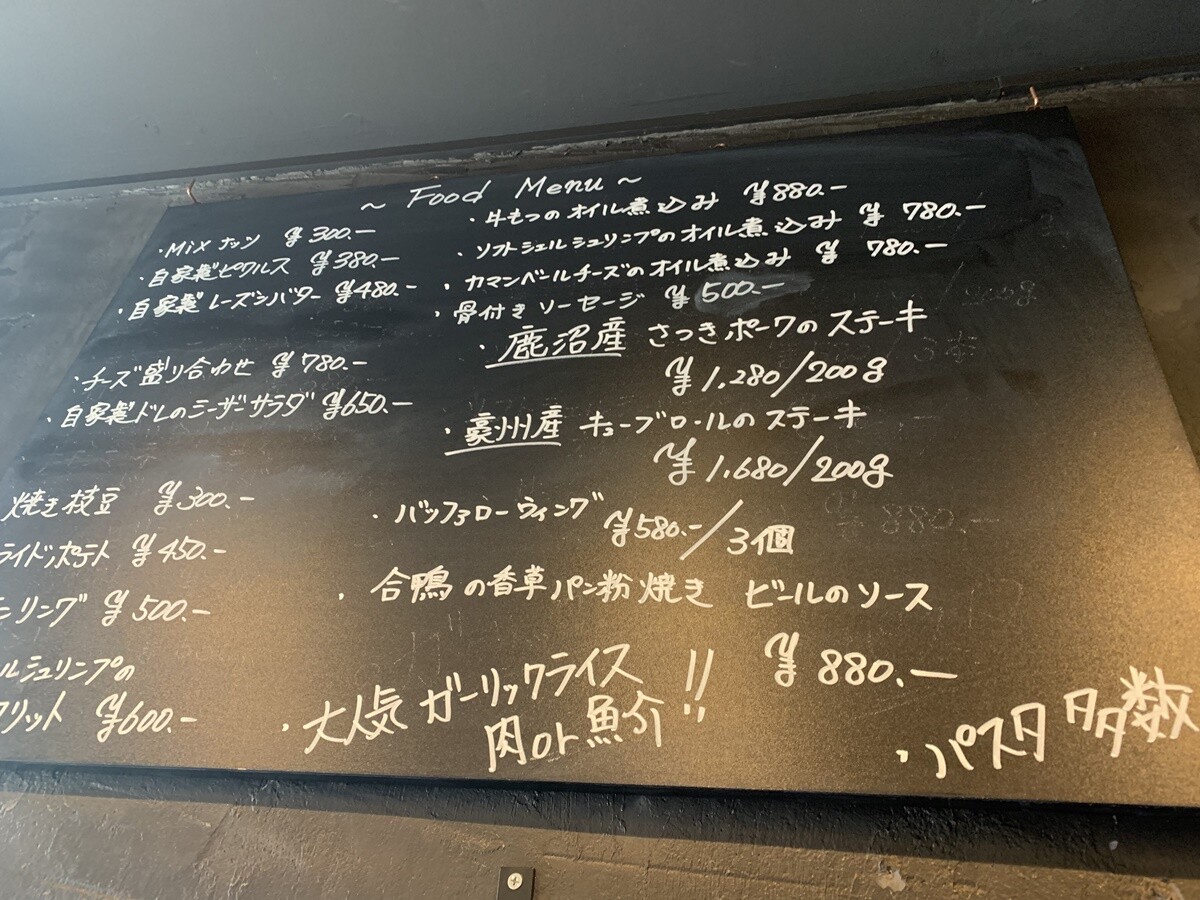 ~ Food Menu ~
・Mix ナッツ ¥300.-
・自家製ピクルス ¥380.-
・自家製レーズンバター ¥480.-
・チーズ盛り合わせ ¥780.-
・自家製ドレのシーザーサラダ ¥650.-
焼き枝豆 ¥300.-
ライドポテト ¥450.-
ニリング ¥500.-
ルシュリンプの
フリット ¥600.-
・牛もつのオイル煮込み ¥880.-
・ソフトシェルシュリンプのオイル煮込み ¥780.-
・カマンベールチーズのオイル煮込み ¥780.-
・骨付きソーセージ ¥500.-
・鹿沼産 さつきポークのステーキ
¥1,280/200g
・豪州産 キューブロールのステーキ
¥1,680/200g
・バッファローウィング
¥580.-/3個
・合鴨の香草パン粉焼き ビールのソース
¥880.-
・大人気 ガーリックライス
肉or魚介 !!
・パスタ多数